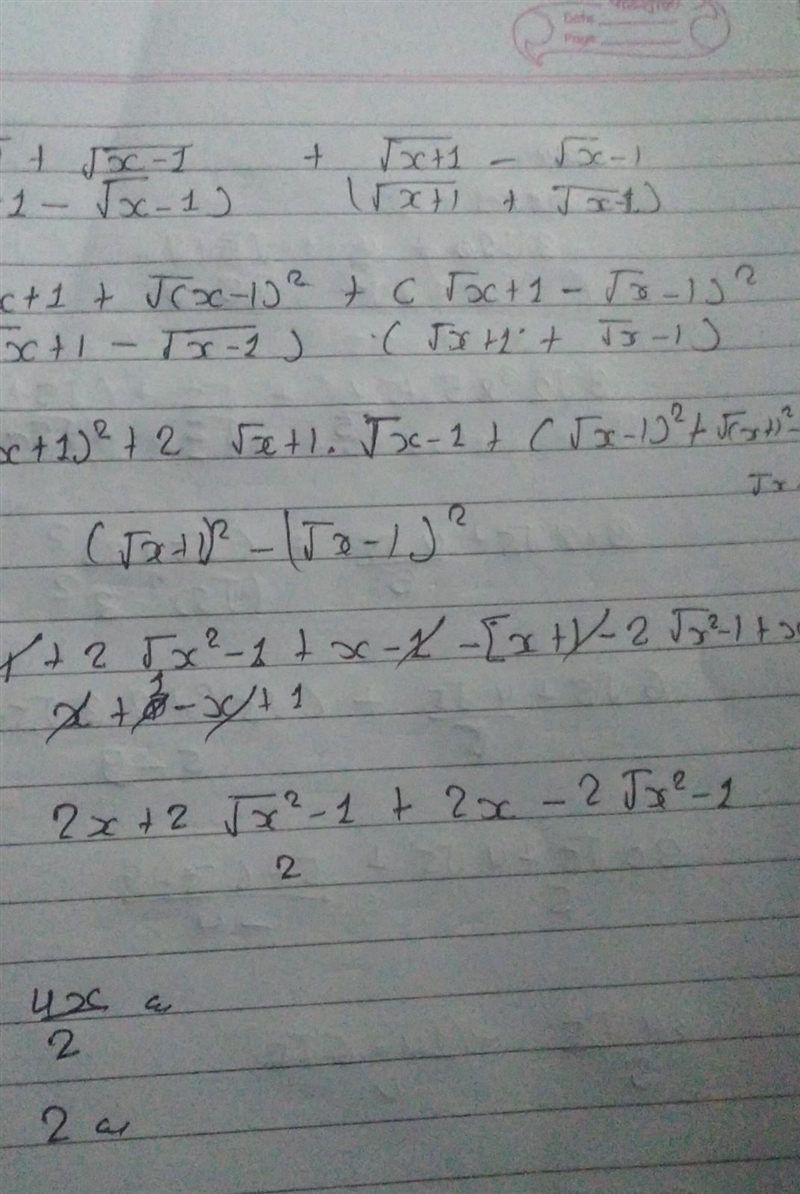 Date
Page
+ √x-1 + √x+1 - √x-1
1 - √x-1) (√x+1 + √x-1)
x+1 + √(x-1)² + (√x+1 - √x-1)²
√x+1 - √x-1) · (√x+1 + √x-1)
x+1)² + 2 √x+1 . √x-1 + (√x-1)² + √(x+1)² -
√x
(√x+1)² - (√x-1)²
+ 2 √x²-1 + x - 1 - [x+1 - 2 √x²-1 + x
x + 1 - x + 1
2x + 2 √x²-1 + 2x - 2 √x²-1
2
4x
2
2